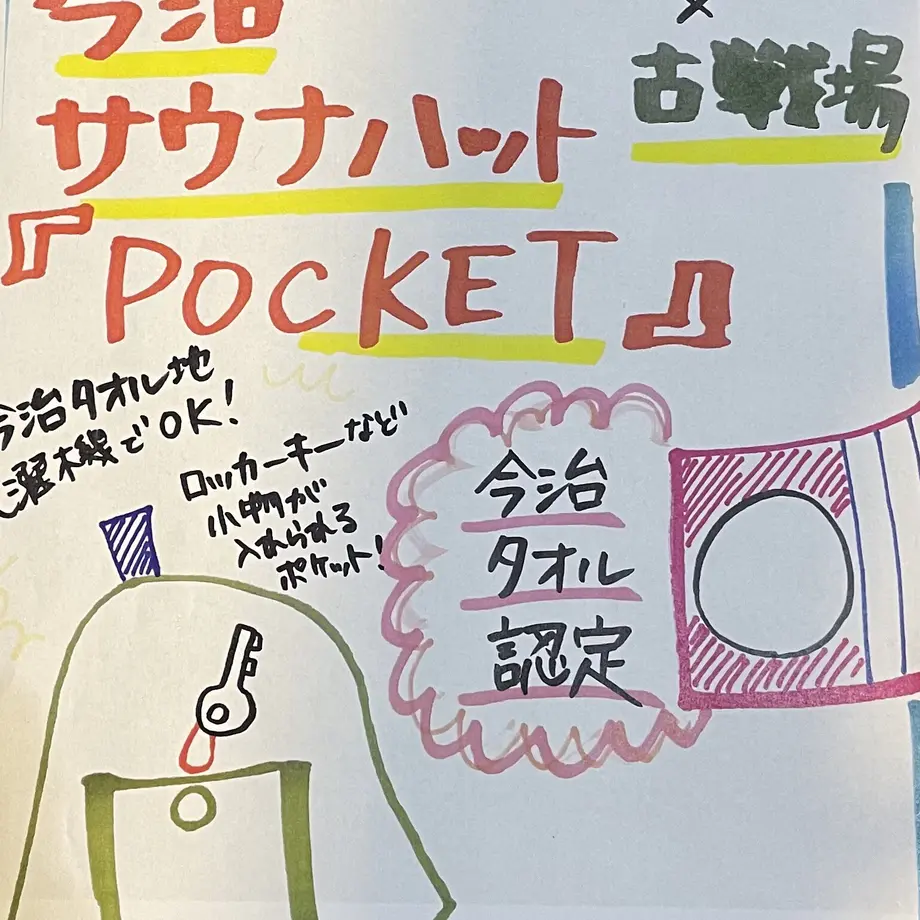 今治
サウナハット
『POCKET』
×
古戦場
今治タオル地
洗濯機でOK!
ロッカーキーなど
小物が
入れられる
ポケット!
今治
タオル
認定